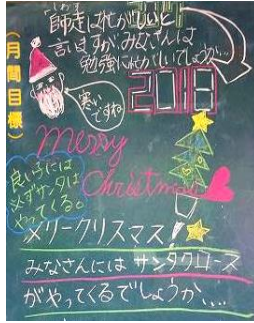 師走は忙がしいと
言いますがみなさんは
勉強に忙がしいでしょうか…
2018
(月間目標)
寒いですね
Merry
Christmas
良い子には
必ずサンタは
やってくる。
メリークリスマス!
みなさんには サンタクロース
がやってくるでしょうか…